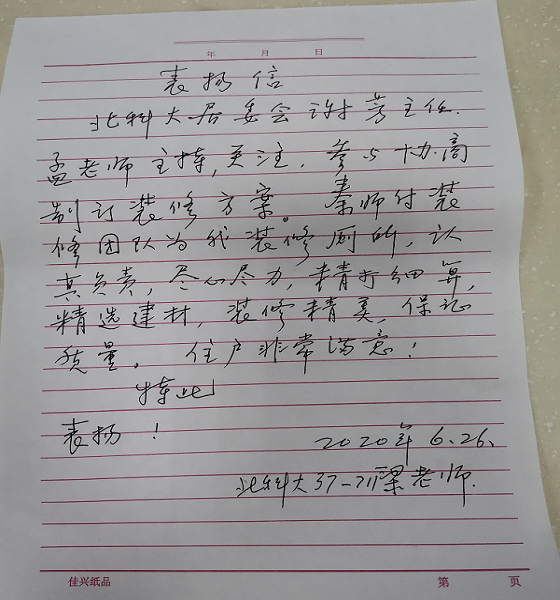 年 月 日
表扬信
北科大居委会谢芳主任.
孟老师主持,关注,参与协商
制订装修方案。秦师付装
修团队为我装修厕所,认
真负责,尽心尽力,精打细算,
精选建材,装修精美,保证
质量。住户非常满意!
特此
表扬!
2020年6.26.
北科大37-711梁老师.
佳兴纸品 第 页